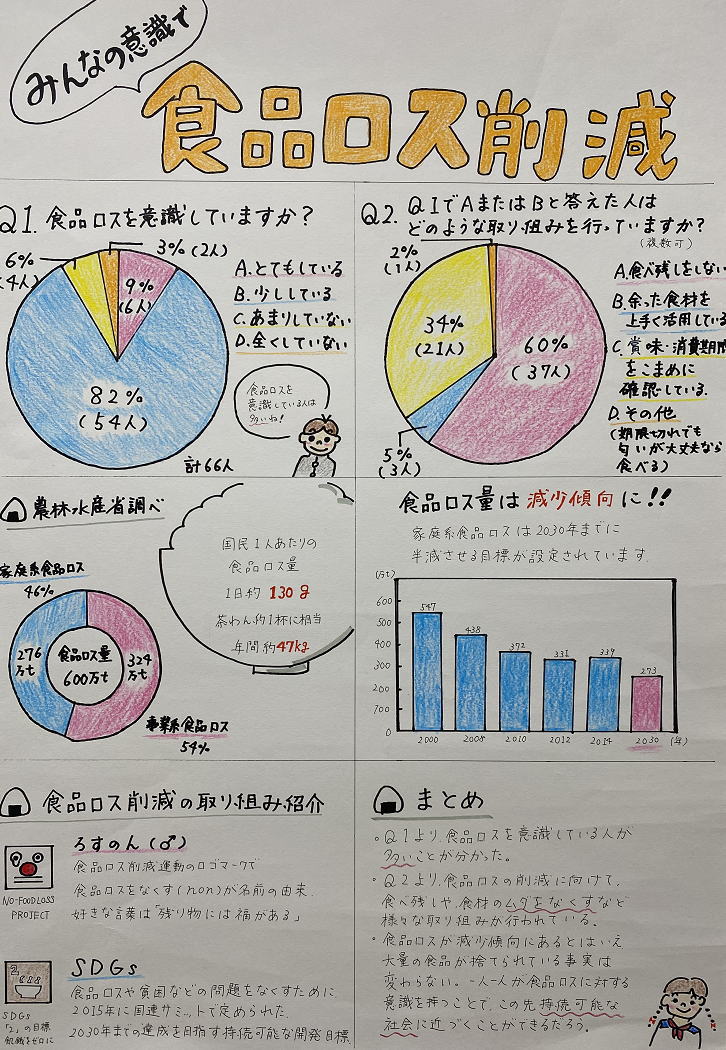 みんなの意識で
食品ロス削減
Q1. 食品ロスを意識していますか？
6%
(4人)
3%(2人)
9%
(6人)
82%
(54人)
A.とてもしている
B.少ししている
C.あまりしていない
D.全くしていない
食品ロスを
意識している人は
多いね！
計66人
Q2. Q1でAまたはBと答えた人は
どのような取り組みを行っていますか？
(複数可)
2%
(1人)
34%
(21人)
60%
(37人)
5%
(3人)
A.食べ残しをしない
B.余った食材を
上手く活用している
C.賞味・消費期間
をこまめに
確認している.
D.その他
(期限切れでも
匂いが大丈夫なら
食べる)
農林水産省調べ
家庭系食品ロス
46%
276
万t
食品ロス量
600万t
324
万t
事業系食品ロス
54%
国民1人あたりの
食品ロス量
1日約130g
茶わん約1杯に相当
年間約47kg
食品ロス量は減少傾向に!!
家庭系食品ロスは2030年までに
半減させる目標が設定されています.
(万t)
600
500
400
300
200
700
0
547
438
372
331
339
273
2000 2008 2010 2012 2014 2030 (年)
食品ロス削減の取り組み紹介
ろすのん(♂)
食品ロス削減運動のロゴマークで
食品ロスをなくす(non)が名前の由来.
好きな言葉は「残り物には福がある」
NO-FOODLOSS
PROJECT
SDGs
食品ロスや貧困などの問題をなくすために
2015年に国連サミットで定められた.
2030年までの達成を目指す持続可能な開発目標
2
SDGs
「2」の目標
飢餓をゼロに
まとめ
・Q1より、食品ロスを意識している人が
多いことが分かった。
・Q2より、食品ロスの削減に向けて、
食べ残しや、食材のムダをなくすなど
様々な取り組みが行われている。
・食品ロスが減少傾向にあるとはいえ
大量の食品が捨てられている事実は
変わらない。一人一人が食品ロスに対する
意識を持つことで、この先持続可能な
社会に近づくことができるだろう。